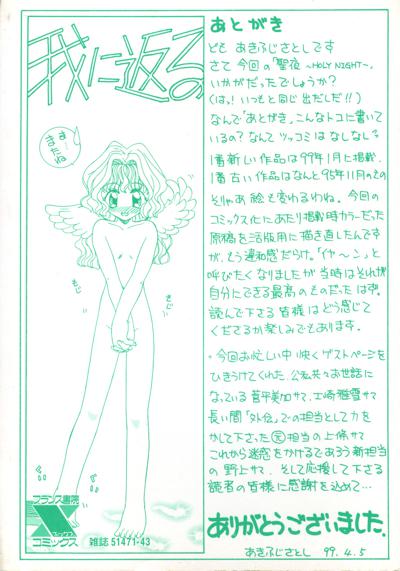 我に返るの
す…
すみません
もじ
もじ
フランス書院
X
コミックス
雑誌 51471-43
あとがき
ども あきふじさとしです
さて 今回の「聖夜 ~HOLY NIGHT~」
いかがだったでしょうか?
(はっ!いつもと同じ出だしだ!!)
なんで「あとがき」、こんなトコに書いて
いるの? なんて ツッコミはなしなし?
1番新しい作品は99年1月に掲載、
1番古い作品はなんと95年11月のもの
そりゃあ 絵も変わるわね。 今回の
コミックス化にあたり掲載時カラーだった
原稿を活版用に描き直したんです
が、もう違和感だらけ。「イヤ~ン」と
呼びたくなりましたが 当時はそれが
自分にできる最高のものだったはず。
読んで下さる皆様はどう感じて
くださるか楽しみでもあります。
・今回お忙しい中 快くゲストページを
ひきうけてくれた、公私共々お世話に
なっている 菅平美加サマ、土崎雅雪サマ
長い間「外伝」での担当として力を
かして下さった 元 担当の上條サマ
これから迷惑をかけるであろう新担当
の野上サマ、そして応援して下さる
読者の皆様に感謝を込めて…
ありがとうございました。
あきふじさとし 99.4.5